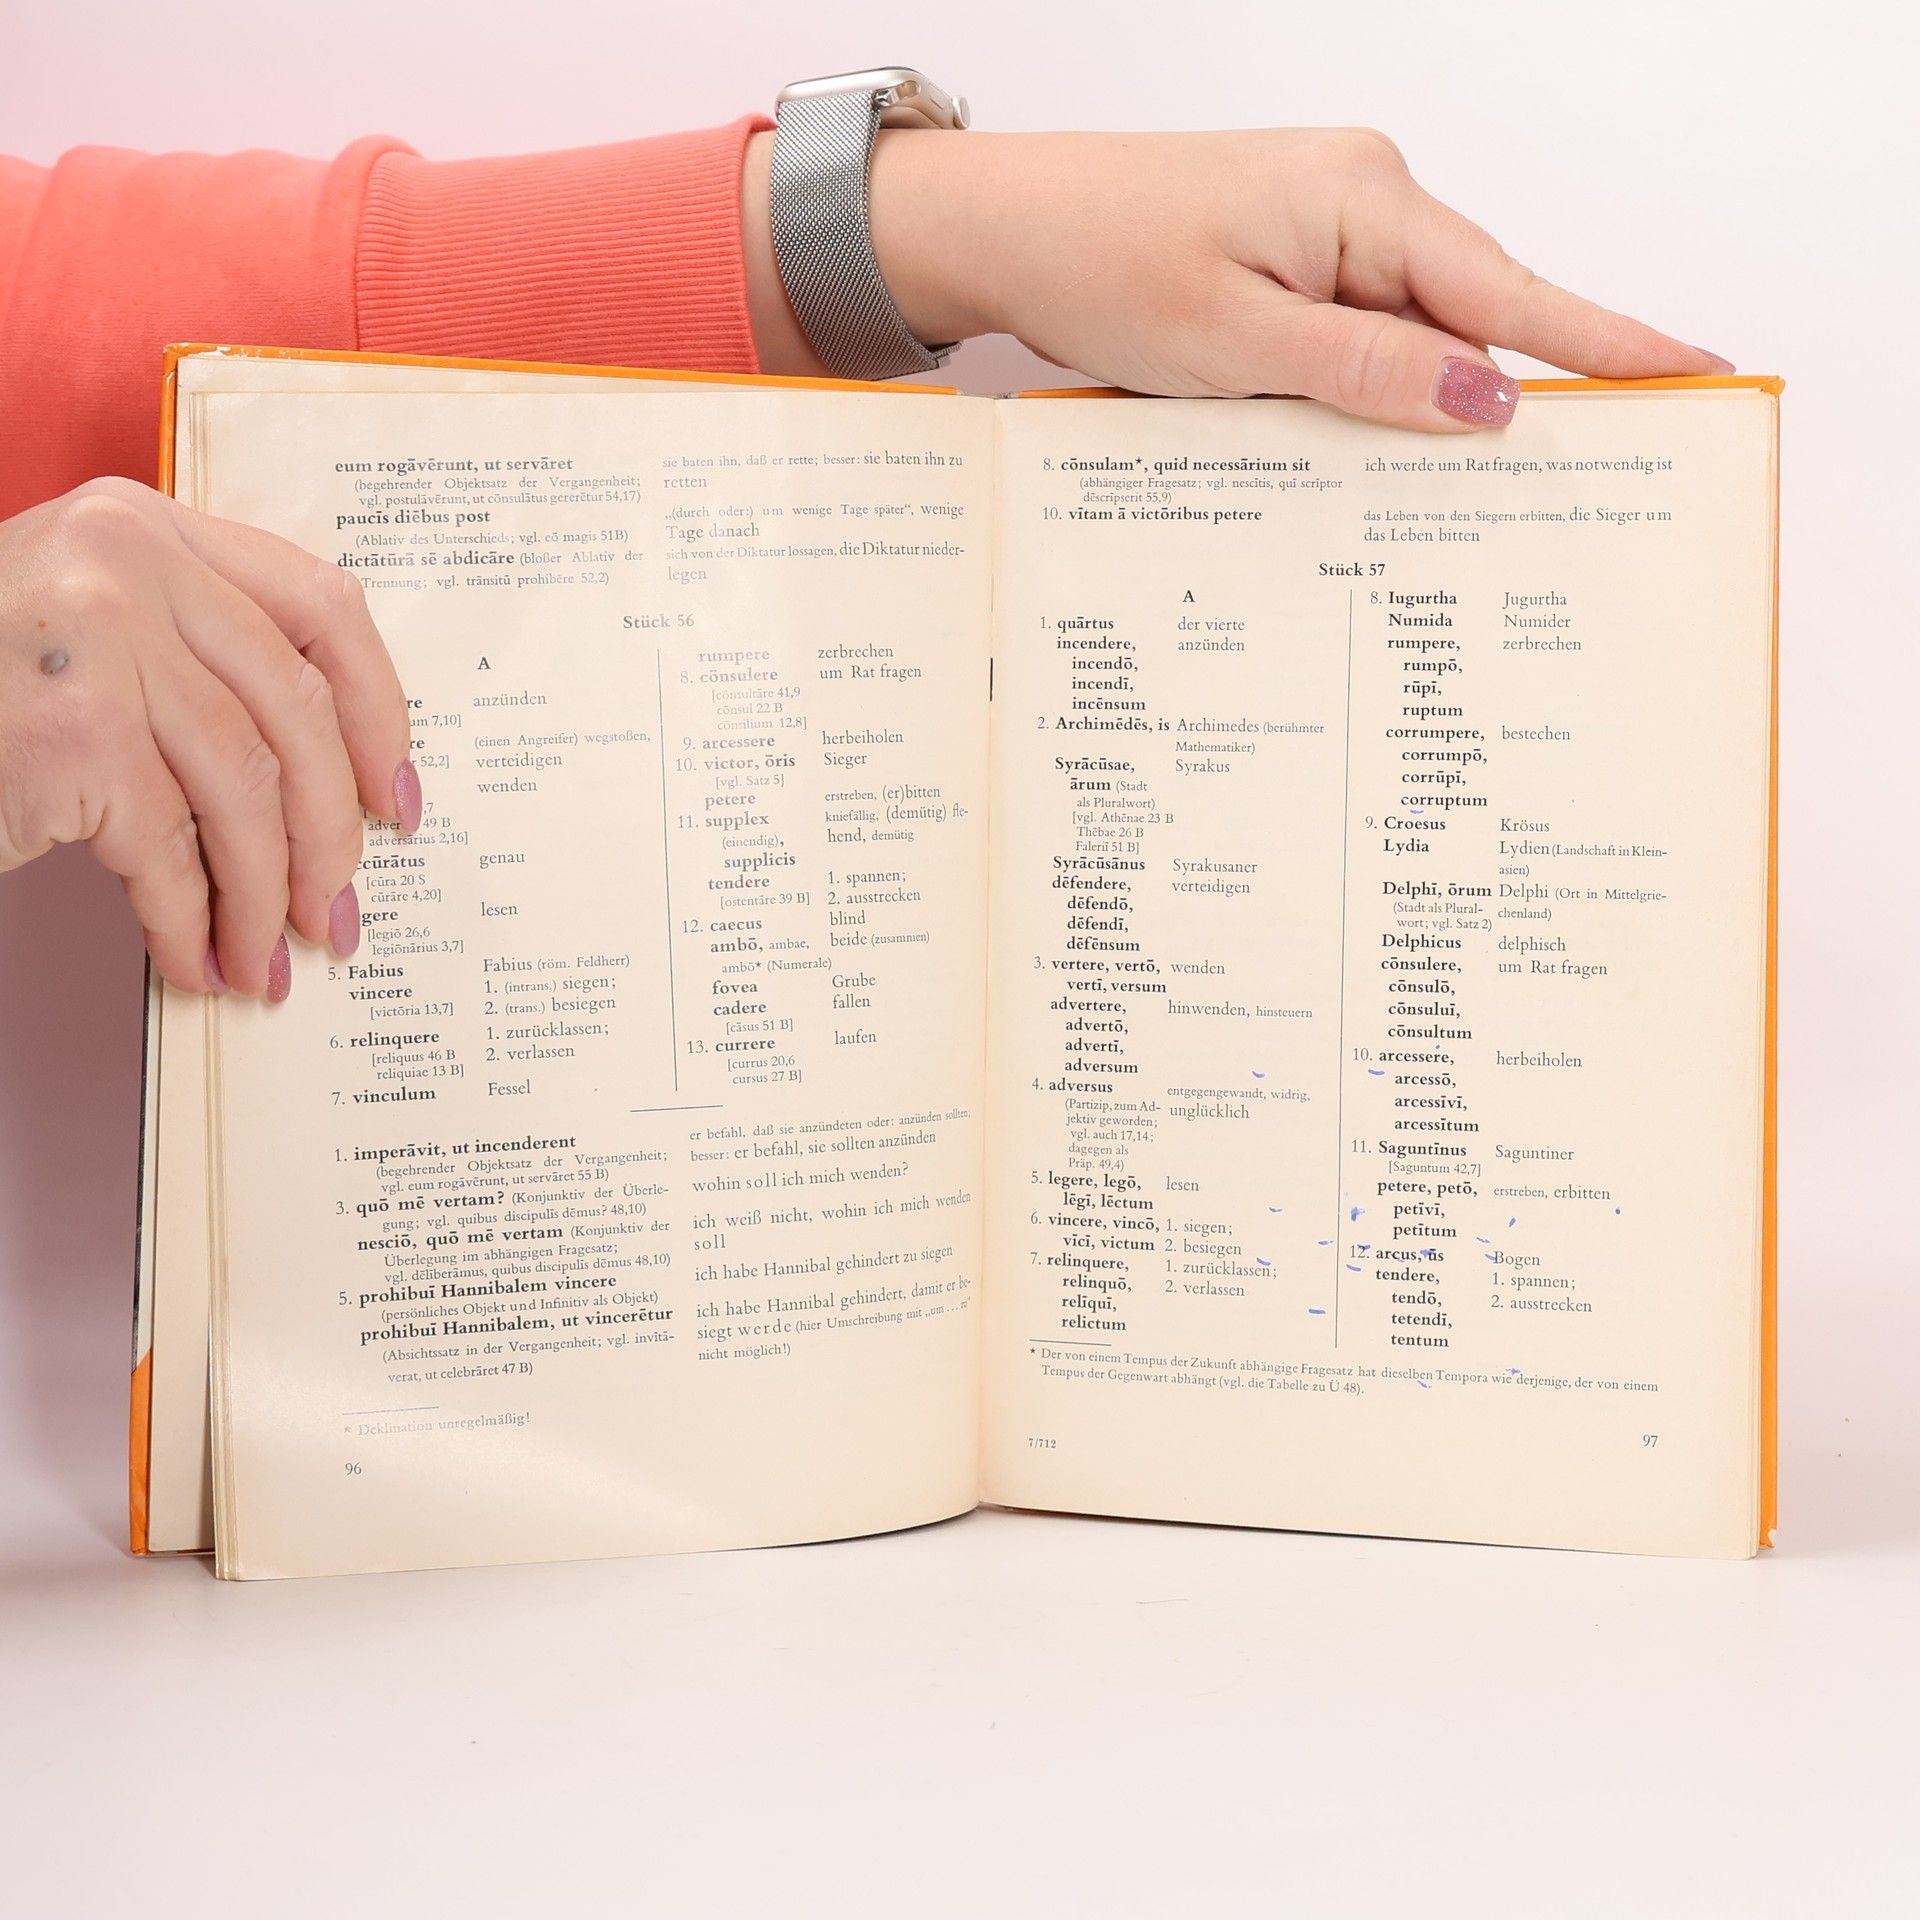 eum rogāvērunt, ut servāret
(begehrender Objektsatz der Vergangenheit;
vgl. postulāvērunt, ut cōnsulātus gererētur 54,17)
sie baten ihn, daß er rette; besser: sie baten ihn zu
retten
paucīs diēbus post
(Ablativ des Unterschieds; vgl. eō magis 51B)
„(durch oder:) um wenige Tage später“, wenige
Tage danach
dictātūrā sē abdicāre (bloßer Ablativ der
Trennung; vgl. trānsitū prohibēre 52,2)
sich von der Diktatur lossagen, die Diktatur nieder-
legen
Stück 56
A
re anzünden
um 7,10]
re (einen Angreifer) wegstoßen,
52,2] verteidigen
wenden
,7
adver 49 B
adversārius 2,16]
cūrātus genau
[cūra 20 S
cūrāre 4,20]
gere lesen
[legiō 26,6
legiōnārius 3,7]
5. Fabius Fabius (röm. Feldherr)
vincere 1. (intrans.) siegen;
[victōria 13,7] 2. (trans.) besiegen
6. relinquere 1. zurücklassen;
[reliquus 46 B 2. verlassen
reliquiae 13 B]
7. vinculum Fessel
rumpere zerbrechen
8. cōnsulere um Rat fragen
[cōnsultāre 41,9
cōnsul 22 B
cōnsilium 12,8]
9. arcessere herbeiholen
10. victor, ōris Sieger
[vgl. Satz 5]
petere erstreben, (er)bitten
11. supplex kniefällig, (demütig) fle-
(einendig), hend, demütig
supplicis
tendere 1. spannen;
[ostentāre 39 B] 2. ausstrecken
12. caecus blind
ambō, ambae, beide (zusammen)
ambō* (Numerale)
fovea Grube
cadere fallen
[cāsus 51 B]
13. currere laufen
[currus 20,6
cursus 27 B]
1. imperāvit, ut incenderent
(begehrender Objektsatz der Vergangenheit;
vgl. eum rogāvērunt, ut servāret 55 B)
er befahl, daß sie anzündeten oder: anzünden sollten;
besser: er befahl, sie sollten anzünden
3. quō mē vertam? (Konjunktiv der Überle-
gung; vgl. quibus discipulīs dēmus? 48,10)
wohin soll ich mich wenden?
nesciō, quō mē vertam (Konjunktiv der
Überlegung im abhängigen Fragesatz;
vgl. dēlīberāmus, quibus discipulīs dēmus 48,10)
ich weiß nicht, wohin ich mich wenden
soll
5. prohibuī Hannibalem vincere
(persönliches Objekt und Infinitiv als Objekt)
ich habe Hannibal gehindert zu siegen
prohibuī Hannibalem, ut vincerētur
(Absichtssatz in der Vergangenheit; vgl. invītā-
verat, ut celebrāret 47 B)
ich habe Hannibal gehindert, damit er be-
siegt werde (hier Umschreibung mit „um ... zu“
nicht möglich!)
* Deklination unregelmäßig!
96
8. cōnsulam*, quid necessārium sit
(abhängiger Fragesatz; vgl. nescītis, quī scrīptor
dēscrīpserit 55,9)
ich werde um Rat fragen, was notwendig ist
10. vītam ā victōribus petere
das Leben von den Siegern erbitten, die Sieger um
das Leben bitten
Stück 57
A
1. quārtus der vierte
incendere, anzünden
incendō,
incendī,
incēnsum
2. Archimēdēs, is Archimedes (berühmter
Mathematiker)
Syrācūsae, Syrakus
ārum (Stadt
als Pluralwort)
[vgl. Athēnae 23 B
Thēbae 26 B
Faleriī 51 B]
Syrācūsānus Syrakusaner
dēfendere, verteidigen
dēfendō,
dēfendī,
dēfēnsum
3. vertere, vertō, wenden
vertī, versum
advertere, hinwenden, hinsteuern
advertō,
advertī,
adversum
4. adversus entgegengewandt, widrig,
(Partizip, zum Ad- unglücklich
jektiv geworden;
vgl. auch 17,14;
dagegen als
Präp. 49,4)
5. legere, legō, lesen
lēgī, lēctum
6. vincere, vincō, 1. siegen;
vīcī, victum 2. besiegen
7. relinquere, 1. zurücklassen;
relinquō, 2. verlassen
relīquī,
relictum
8. Iugurtha Jugurtha
Numida Numider
rumpere, zerbrechen
rumpō,
rūpī,
ruptum
corrumpere, bestechen
corrumpō,
corrūpī,
corruptum
9. Croesus Krösus
Lydia Lydien (Landschaft in Klein-
asien)
Delphī, ōrum Delphi (Ort in Mittelgrie-
(Stadt als Plural- chenland)
wort; vgl. Satz 2)
Delphicus delphisch
cōnsulere, um Rat fragen
cōnsulō,
cōnsuluī,
cōnsultum
10. arcessere, herbeiholen
arcessō,
arcessīvī,
arcessītum
11. Saguntīnus Saguntiner
[Saguntum 42,7]
petere, petō, erstreben, erbitten
petīvī,
petītum
12. arcus, ūs Bogen
tendere, 1. spannen;
tendō, 2. ausstrecken
tetendī,
tentum
* Der von einem Tempus der Zukunft abhängige Fragesatz hat dieselben Tempora wie derjenige, der von einem
Tempus der Gegenwart abhängt (vgl. die Tabelle zu Ü 48).
7/712
97